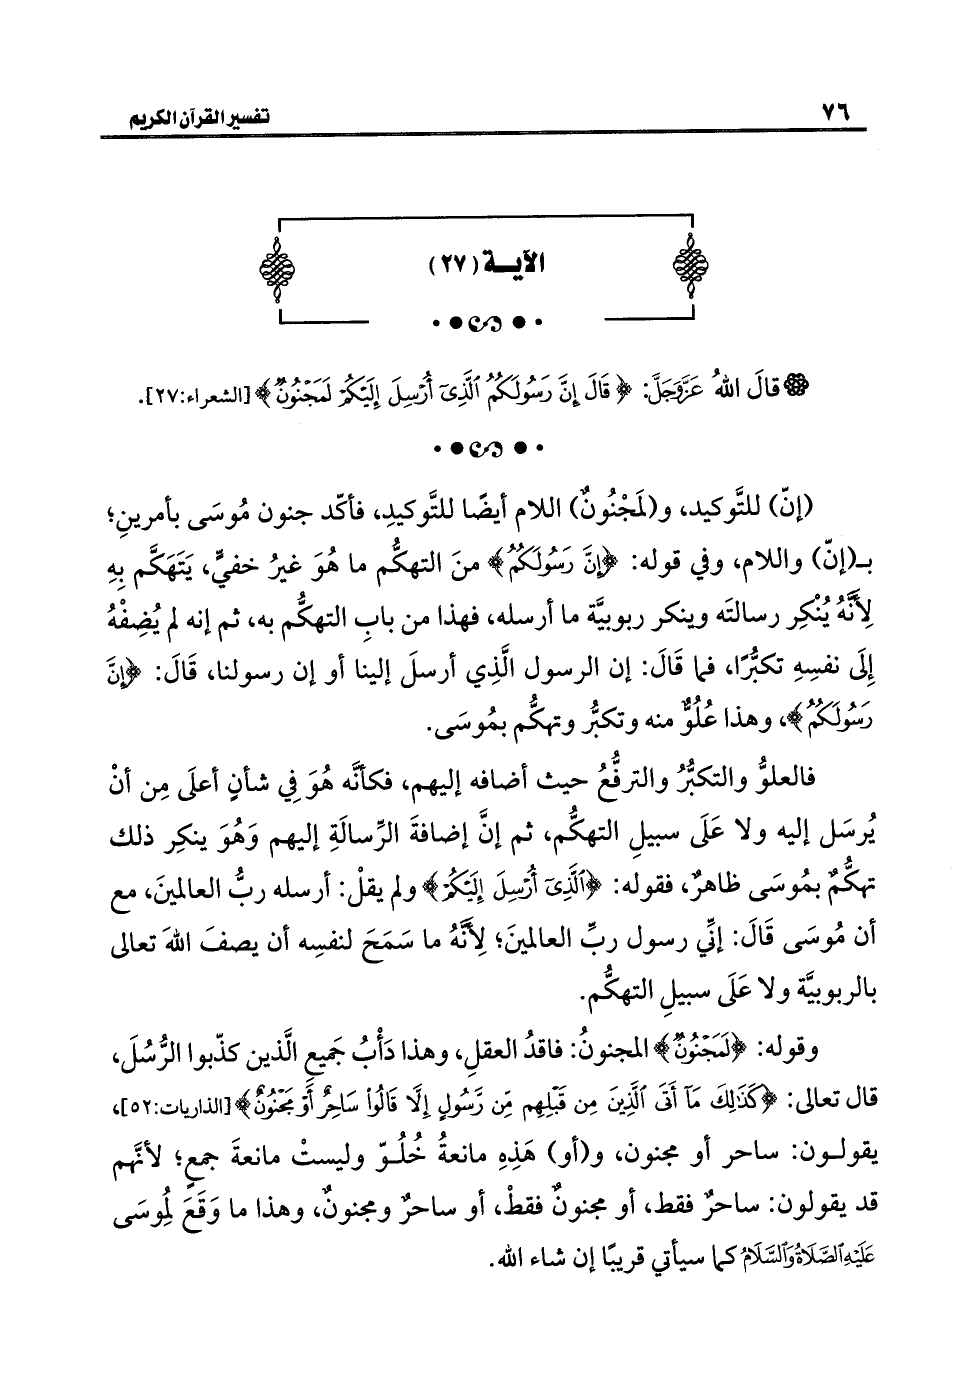 ٧٦
تفسير القرآن الكريم
الآيــة (٢٧)
قالَ اللهُ عَزَّوَجَلَّ: ﴿ قَالَ إِنَّ رَسُولَكُمُ ٱلَّذِىٓ أُرْسِلَ إِلَيْكُمْ لَمَجْنُونٌ ﴾ [الشعراء:٢٧].
(إنّ) للتَّوكيد، و(لَمَجْنُونٌ) اللام أيضًا للتَّوكيدِ، فأكّد جنون مُوسَى بأمرينِ؛
بـ(إنّ) واللام، وفي قوله: ﴿إِنَّ رَسُولَكُمُ﴾ منَ التهكُّم ما هُوَ غيرُ خفيٍّ، يَتَهَكَّم بِهِ
لِأَنَّهُ يُنْكِر رسالتَه وينكر ربوبيَّة ما أرسله، فهذا من بابِ التهكُّم به، ثم إنه لم يُضِفْهُ
إِلَى نفسِهِ تكبُّرًا، فما قَالَ: إن الرسول الَّذِي أرسلَ إلينا أو إن رسولنا، قَالَ: ﴿إِنَّ
رَسُولَكُمُ﴾، وهذا عُلُوٌّ منه وتكبُّر وتهكُّم بمُوسَى.
فالعلوُّ والتكبُّرُ والترفُّعُ حيث أضافه إليهم، فكأنَّه هُوَ فِي شأنٍ أعلَى مِن أنْ
يُرسَل إليه ولا عَلَى سبيلِ التهكُّم، ثم إنَّ إضافةَ الرِّسالَةِ إليهم وَهُوَ ينكِر ذلك
تهكُّمٌ بمُوسَى ظاهرٌ، فقوله: ﴿ٱلَّذِىٓ أُرْسِلَ إِلَيْكُمْ﴾ ولم يقلْ: أرسله ربُّ العالمينَ، مع
أن مُوسَى قَالَ: إنِّي رسول ربِّ العالمينَ؛ لِأَنَّهُ ما سَمَحَ لنفسِه أن يصفَ اللهَ تعالى
بالربوبيَّة ولا عَلَى سبيلِ التهكُّم.
وقوله: ﴿لَمَجْنُونٌ﴾ المجنونُ: فاقدُ العقلِ، وهذا دَأْبُ جَميعِ الَّذين كذّبوا الرُّسُلَ،
قال تعالى: ﴿كَذَٰلِكَ مَآ أَتَى ٱلَّذِينَ مِن قَبْلِهِم مِّن رَّسُولٍ إِلَّا قَالُوا۟ سَاحِرٌ أَوْ مَجْنُونٌ﴾ [الذاريات:٥٢]،
يقولـون: ساحر أو مجنون، و(أو) هَذِهِ مانعةُ خُلُـوّ وليستْ مانعةَ جمعٍ؛ لأنَّهم
قد يقولون: ساحرٌ فقط، أو مجنونٌ فقطْ، أو ساحرٌ ومجنونٌ، وهذا ما وَقَعَ لِمُوسَى
عَلَيْهِ ٱلصَّلَاةُ وَٱلسَّلَامُ كما سيأتي قريبًا إن شاء الله.